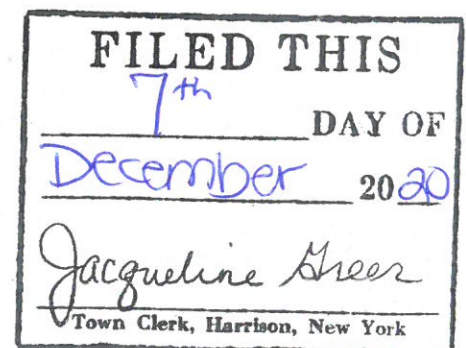 FILED THIS
7th
DAY OF
December 2020
Jacqueline Greer
Town Clerk, Harrison, New York